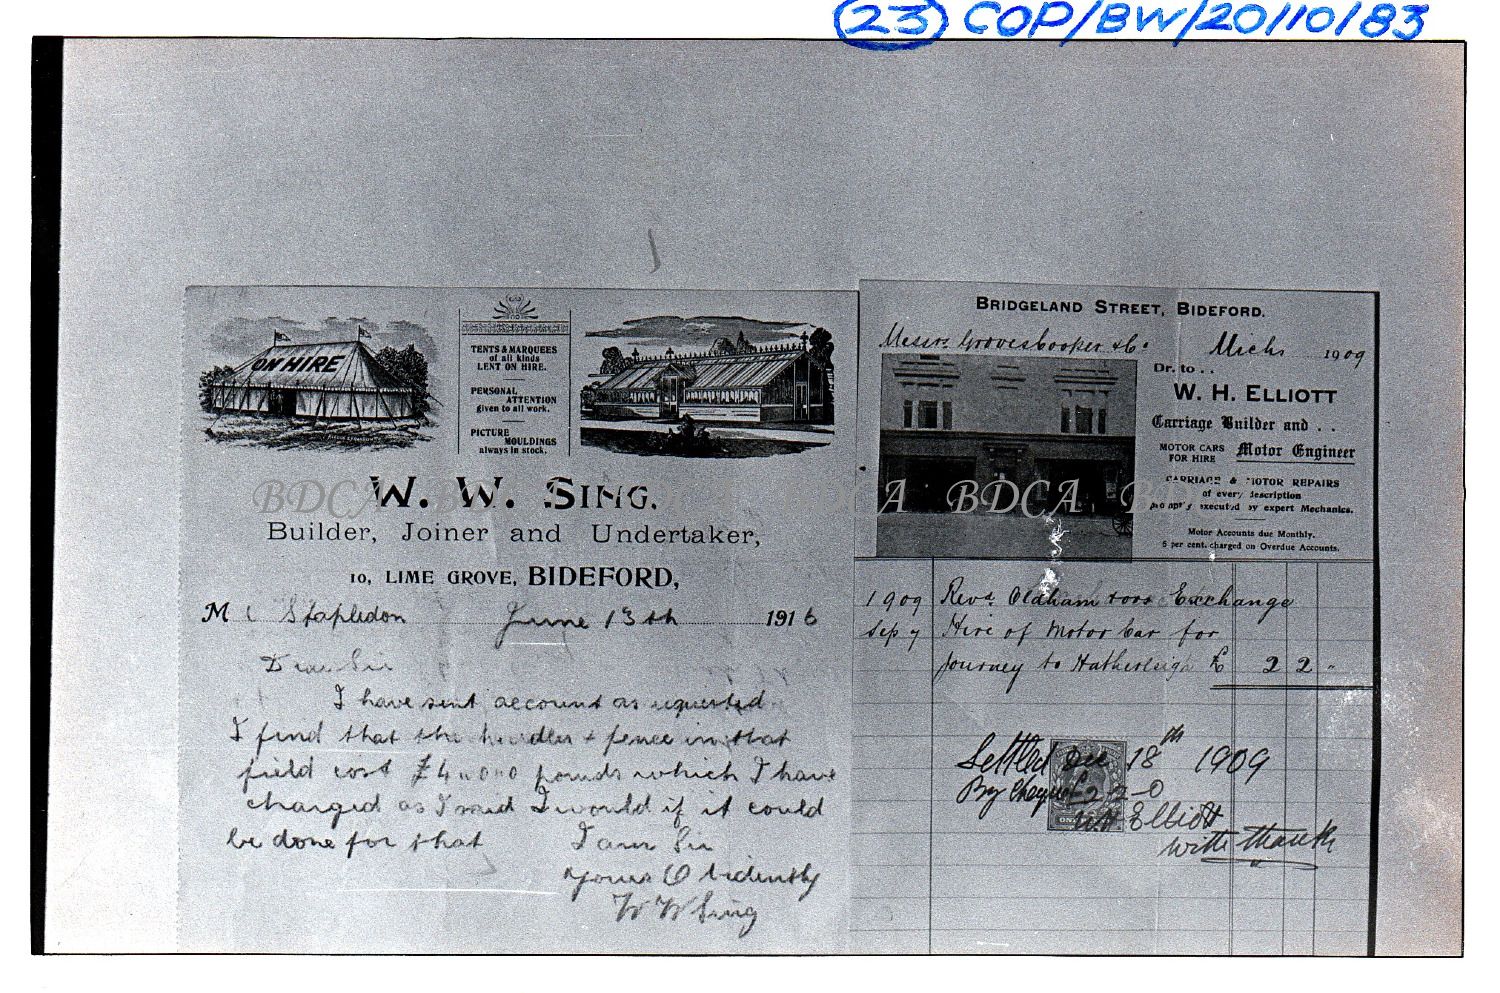 (23) COP/BW/20/10/83
ON HIRE
TENTS & MARQUEES
of all kinds
LENT ON HIRE.
PERSONAL
ATTENTION
given to all work.
PICTURE
MOULDINGS
always in stock.
W. W. SING.
Builder, Joiner and Undertaker,
10, LIME GROVE, BIDEFORD,
M Stapledon June 13th 1916
Dear Sir
I have sent account as requested
I find that the hurdles + fence in that
field cost pounds which I have
charged as I said I would if it could
be done for that I am Sir
Yours Obidently
W W Sing
BRIDGELAND STREET, BIDEFORD.
Messrs & Co Michs 1909
Dr. to . .
W. H. ELLIOTT
Carriage Builder and . .
MOTOR CARS
FOR HIRE
Motor Engineer
CARRIAGE & MOTOR REPAIRS
of every description
promptly executed by expert Mechanics.
Motor Accounts due Monthly.
5 per cent. charged on Overdue Accounts.
1909 Revd. Oldham Exchange
Sep 7 Hire of Motor Car for
Journey to Hatherleigh £ 2 2 "
Settled Dec 18th 1909
By Cheque £2-2-0
WH Elliott
With thanks
BDCA BDCA BDCA BDCA BDCA